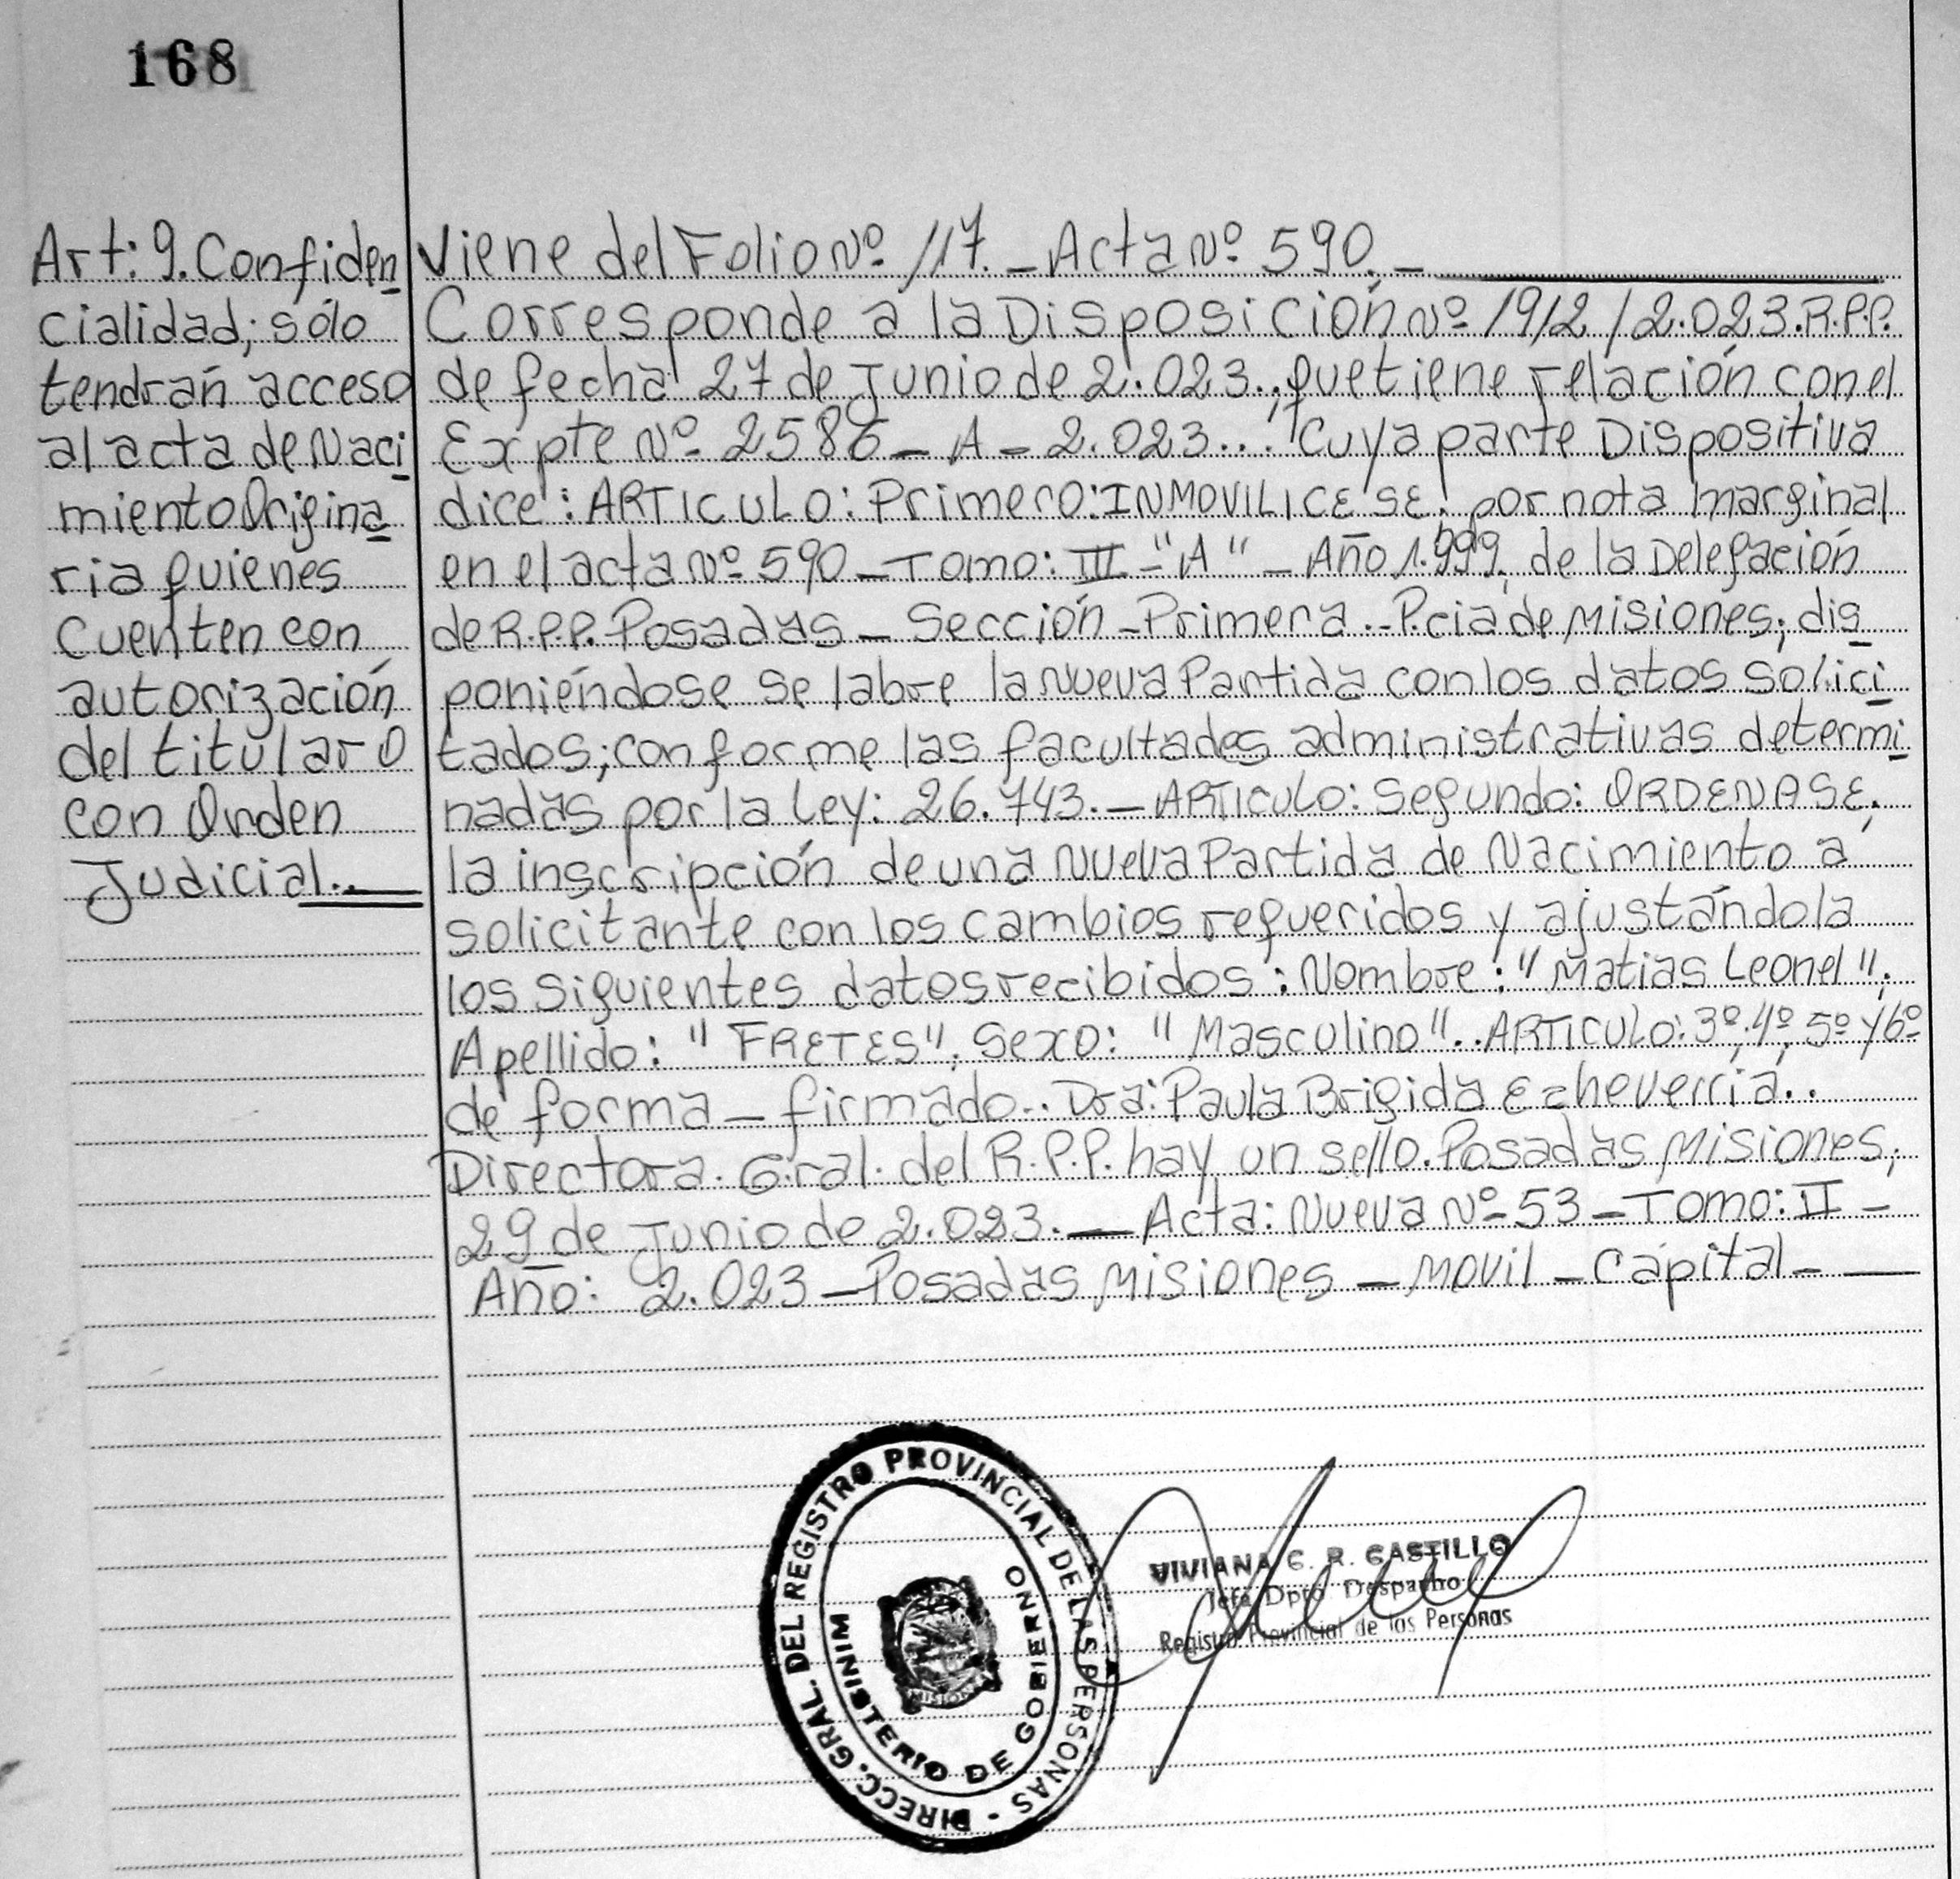 168
Art: 9. Confiden
cialidad; sólo
tendrán acceso
al acta de Naci
miento Origina
ria quienes
Cuenten con
autorización
del titular O
con Orden
Judicial..
Viene del Folio Nº 117. - Acta Nº 590. -
Corresponde a la Disposición Nº 1912 / 2.023. R.P.P.
de fecha 27 de Junio de 2.023.; que tiene relación con el
Expte Nº 2586 - A - 2.023... Cuya parte Dispositiva
dice: ARTICULO: Primero: INMOVILICESE. por nota marginal
en el acta Nº 590 - Tomo: III - "A" - Año 1.999, de la Delegación
de R.P.P. Posadas - Sección - Primera.. - Pcia de Misiones; dis
poniéndose se labre la Nueva Partida con los datos solici
tados; conforme las facultades administrativas determi
nadas por la Ley: 26.743. - ARTICULO: Segundo: ORDENASE,
la inscripción de una Nueva Partida de Nacimiento a
solicitante con los cambios requeridos y ajustándola
los siguientes datos recibidos: Nombre: "Matias Leonel";
Apellido: "FRETES", Sexo: "Masculino".. ARTICULO: 3º, 4º, 5º y 6º
de forma - firmado.. Dra: Paula Brigida Echeverria..
Directora. Gral. del R.P.P. hay un sello. Posadas Misiones,
29 de Junio de 2.023. - Acta: Nueva Nº 53 - Tomo: II -
Año: 2.023 - Posadas Misiones - Movil - Capital -
DIRECC. GRAL. DEL REGISTRO PROVINCIAL DE LAS PERSONAS -
MINISTERIO DE GOBIERNO
VIVIANA C. R. CASTILLO
Jefa Dpto. Despacho
Registro Provincial de las Personas